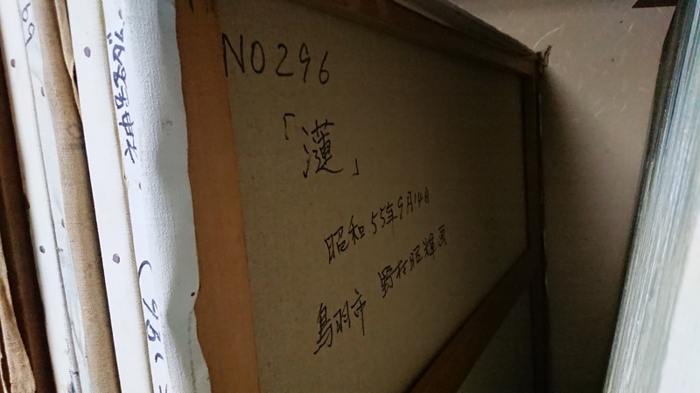 NO296
「蓮」
昭和55年9月14日
鳥羽市 野村昭輝画